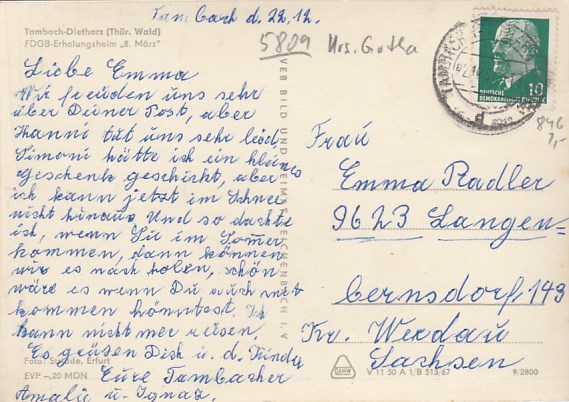 Tambach d. 22.12.
Tambach-Dietharz (Thür. Wald)
FDGB-Erholungsheim „8. März"
5809 Krs. Gotha
DEUTSCHE
DEMOKRATISCHE
10
846
7,-
Liebe Emma
Wir freuden uns sehr
über Deiner Post, aber
Hanni tut uns sehr leid,
Simoni hätte ich ein kleines
geschenk geschickt, aber
ich kann jetzt im Schnee
nicht hinaus und so dachte
ich, wenn Sie im Somer
kommen, dann können
wir es nach holen, schön
wäre es wenn Du auch mit
kommen könntest. Ich
kann nicht mer reisen.
Es grüsen Dich u. d.
Eure Tambacher
Amalie u. Ignaz.
VEB BILD UND HEIMAT REICHENBACH I. V.
Frau
Emma Radler
9623 Langen-
bernsdorf 149
Kr. Werdau
Sachsen
Foto: Erfurt
EVP -,20 MDN
V 11 50 A 1/B 513/67
9/2800